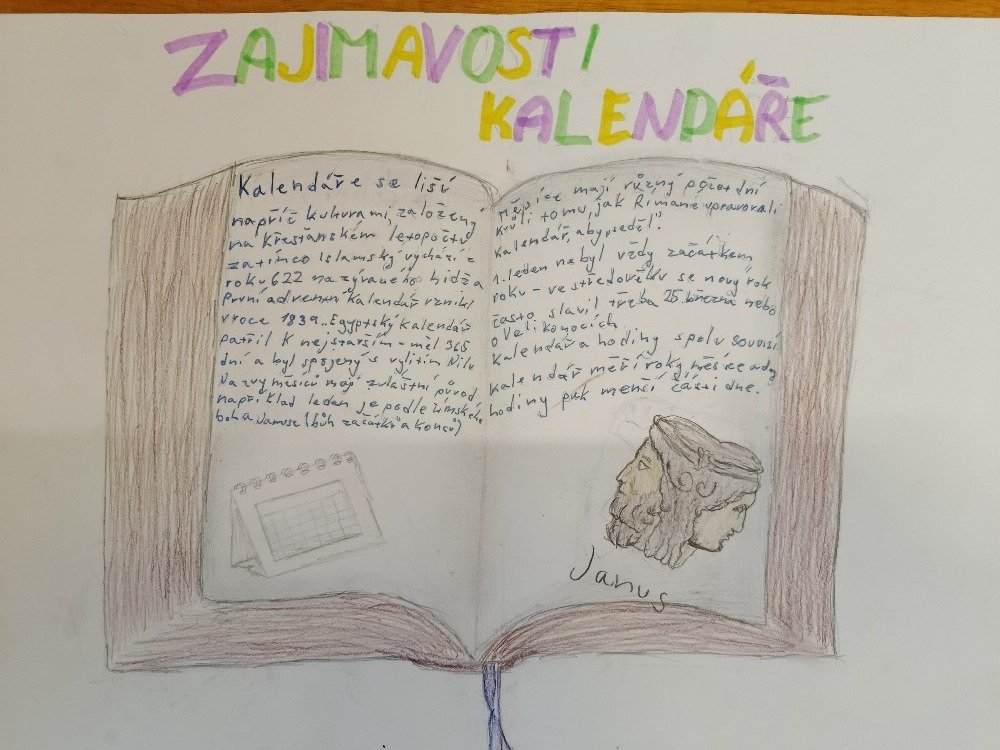 ZAJIMAVOSTI
KALENDÁŘE
Kalendáře se liší
napříč kulturami, založený
na křesťanském letopočtu
zatímco Islamský vychází z
roku 622 nazývaného hidžra
První adventní kalendář vznikl
v roce 1839. Egyptský kalendář
patřil k nejstarším - měl 365
dní a byl spojený s vylitím Nilu
Názvy měsíců mají zvláštní původ,
například leden je podle římského
boha Januse (bůh začátků a konců)
Měsíce mají různý počet dní
kvůli tomu, jak Římané upravovali
kalendář, aby "seděl".
1. leden nebyl vždy začátkem
roku - ve středověku se nový rok
často slavil třeba 25. března nebo
o Velikonocích
Kalendář a hodiny spolu souvisí
kalendář měří roky, měsíce a dny
hodiny pak menší části dne.
Janus